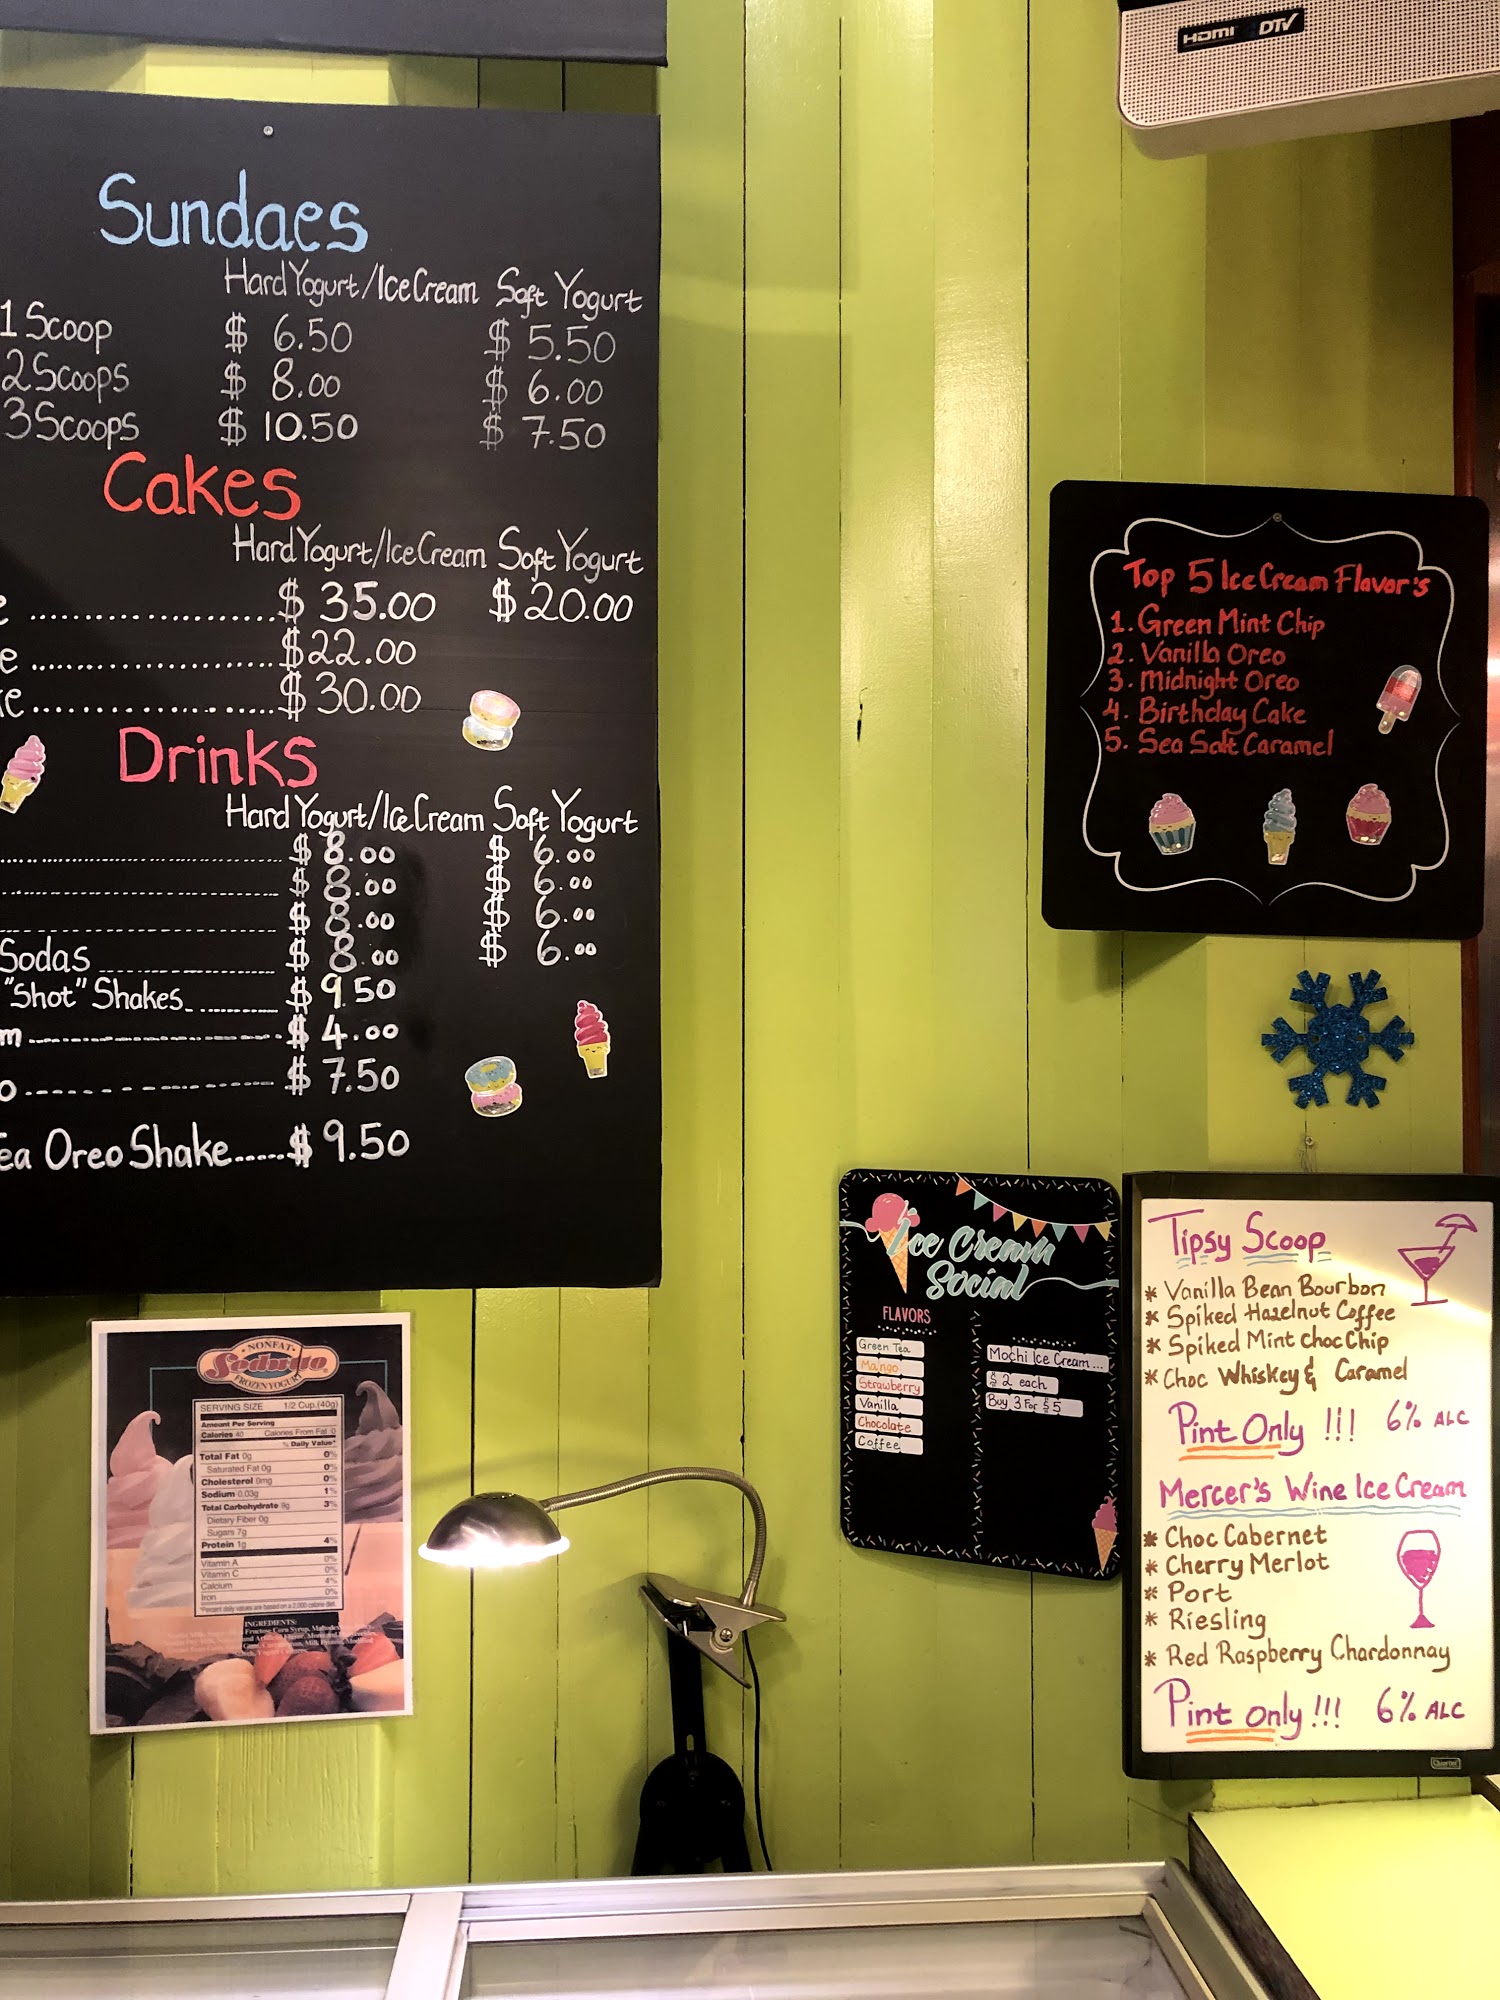 HDMI DTV
Sundaes
Hard Yogurt/Ice Cream Soft Yogurt
1 Scoop $ 6.50 $ 5.50
2 Scoops $ 8.00 $ 6.00
3 Scoops $ 10.50 $ 7.50
Cakes
Hard Yogurt/Ice Cream Soft Yogurt
e ........................ $ 35.00 $ 20.00
e ........................ $22.00
ke ........................ $ 30.00
Drinks
Hard Yogurt/Ice Cream Soft Yogurt
........................ $ 8.00 $ 6.00
........................ $ 8.00 $ 6.00
........................ $ 8.00 $ 6.00
Sodas ........................ $ 8.00 $ 6.00
"Shot" Shakes ............ $ 9.50
m ........................ $ 4.00
o ........................ $ 7.50
ea Oreo Shake...... $ 9.50
Top 5 Ice Cream Flavor's
1. Green Mint Chip
2. Vanilla Oreo
3. Midnight Oreo
4. Birthday Cake
5. Sea Salt Caramel
Ice Cream
Social
FLAVORS
Green Tea
Mango
Strawberry
Vanilla
Chocolate
Coffee
Mochi Ice Cream...
$ 2 each
Buy 3 For $5
Tipsy Scoop
* Vanilla Bean Bourbon
* Spiked Hazelnut Coffee
* Spiked Mint choc Chip
* Choc Whiskey & Caramel
Pint Only !!! 6% ALC
Mercer's Wine Ice Cream
* Choc Cabernet
* Cherry Merlot
* Port
* Riesling
* Red Raspberry Chardonnay
Pint only !!! 6% ALC
Quartet
• NONFAT •
FROZEN YOGURT
SERVING SIZE 1/2 Cup.(40g)
Amount Per Serving
Calories 40 Calories From Fat 0
% Daily Value*
Total Fat 0g 0%
Saturated Fat 0g 0%
Cholesterol 0mg 0%
Sodium 0.03g 1%
Total Carbohydrate 9g 3%
Dietary Fiber 0g
Sugars 7g
Protein 1g 4%
Vitamin A 0%
Vitamin C 0%
Calcium 4%
Iron 0%
*Percent daily values are based on a 2,000 calorie diet.
INGREDIENTS: